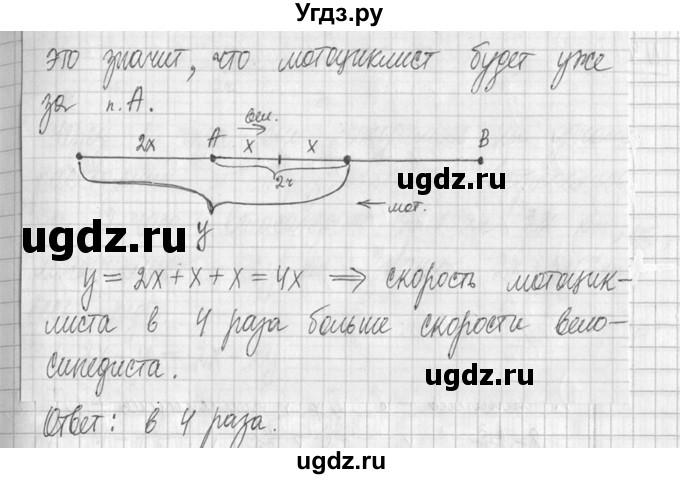 Угдз.ру
это значит, что мотоциклист будет уже
за п. А.
вел.
2x A x x B
2ч
ugdz.ru
← мот.
ugdz.ru
y
y = 2x + x + x = 4x ⇒ скорость мотоцик-
листа в 4 раза больше скорости вело-
сипедиста.
ugdz.ru
Ответ: в 4 раза.
ugdz.ru
ugdz.ru